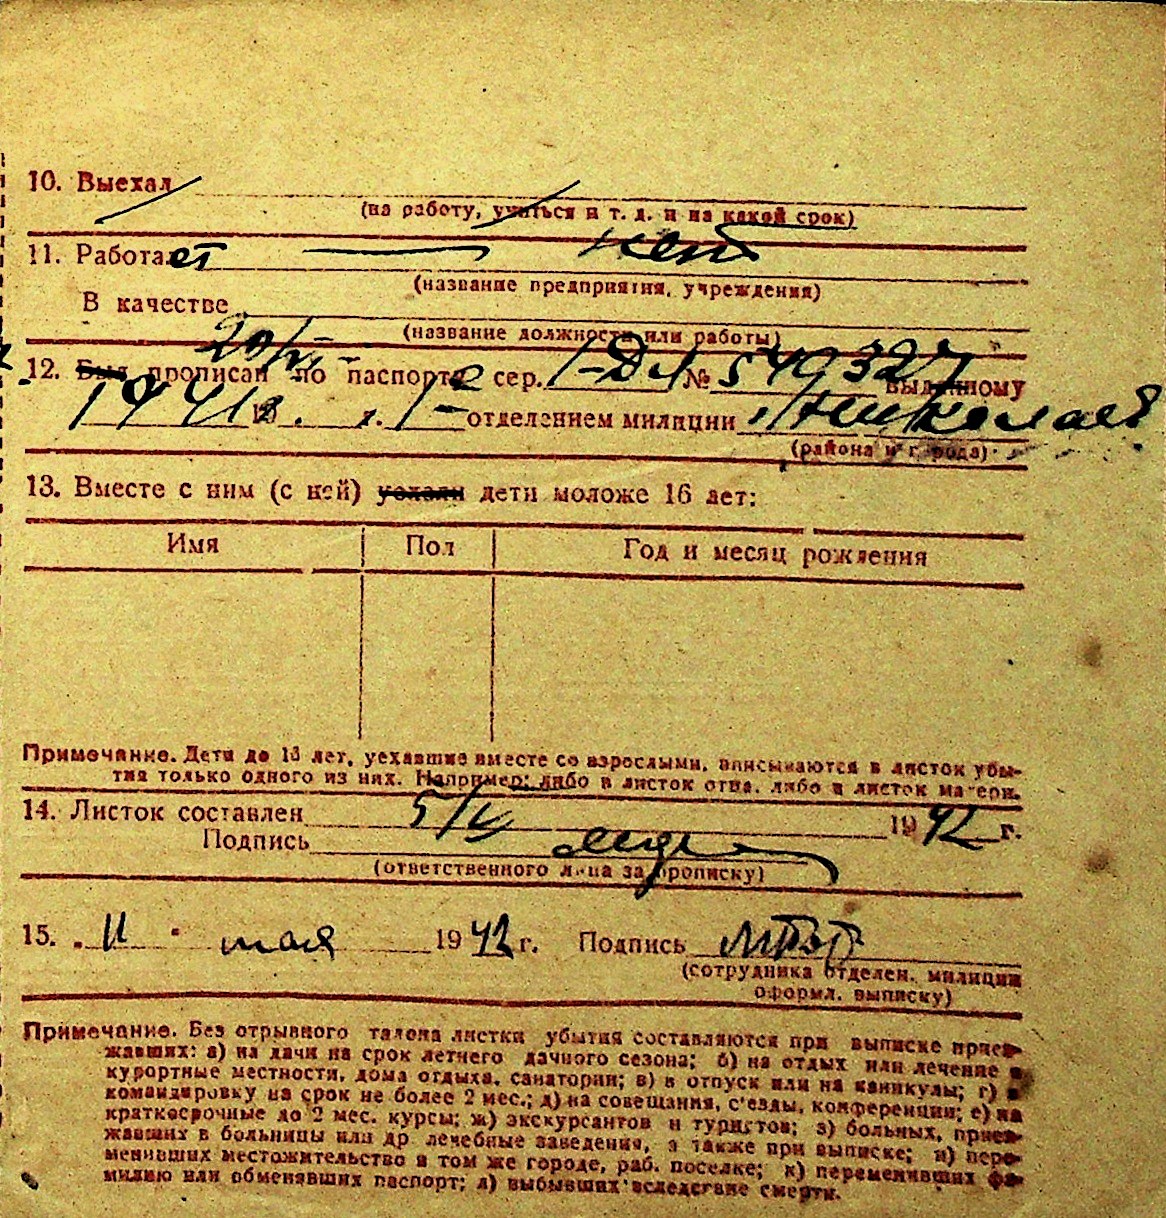 10. Выехал
(на работу, учиться и т. д. и на какой срок)
11. Работает — нет
(название предприятия, учреждения)
В качестве
(название должности или работы)
12. Был прописан по паспорту сер. № 549327 выданному
1941 г. 1- отделением милиции г. Николаев
(района и города)
13. Вместе с ним (с ней) уехали дети моложе 16 лет:
Имя Пол Год и месяц рождения
Примечание. Дети до 16 лет, уехавшие вместе со взрослыми, вписываются в листок убы-
тия только одного из них. Например: либо в листок отца, либо в листок матери.
14. Листок составлен 5/V 1942 г.
Подпись
(ответственного лица за прописку)
15. „11" мая 1942 г. Подпись
(сотрудника отделен. милиции
оформл. выписку)
Примечание. Без отрывного талона листки убытия составляются при выписке приез-
жавших: а) на дачи на срок летнего дачного сезона; б) на отдых или лечение в
курортные местности, дома отдыха, санатории; в) в отпуск или на каникулы; г) в
командировку на срок не более 2 мес.; д) на совещания, с'езды, конференции; е) на
краткосрочные до 2 мес. курсы; ж) экскурсантов и туристов; з) больных, приез-
жавших в больницы или др лечебные заведения, а также при выписке; и) пере-
менивших местожительство в том же городе, раб. поселке; к) переменивших фа-
милию или обменявших паспорт; л) выбывших вследствие смерти.